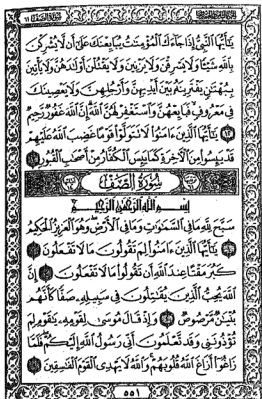 يَٰٓأَيُّهَا ٱلنَّبِىُّ إِذَا جَآءَكَ ٱلْمُؤْمِنَٰتُ يُبَايِعْنَكَ عَلَىٰٓ أَن لَّا يُشْرِكْنَ
بِٱللَّهِ شَيْـًٔا وَلَا يَسْرِقْنَ وَلَا يَزْنِينَ وَلَا يَقْتُلْنَ أَوْلَٰدَهُنَّ وَلَا يَأْتِينَ
بِبُهْتَٰنٍ يَفْتَرِينَهُۥ بَيْنَ أَيْدِيهِنَّ وَأَرْجُلِهِنَّ وَلَا يَعْصِينَكَ
فِى مَعْرُوفٍ فَبَايِعْهُنَّ وَٱسْتَغْفِرْ لَهُنَّ ٱللَّهَ إِنَّ ٱللَّهَ غَفُورٌ رَّحِيمٌ
١٢ يَٰٓأَيُّهَا ٱلَّذِينَ ءَامَنُوا۟ لَا تَتَوَلَّوْا۟ قَوْمًا غَضِبَ ٱللَّهُ عَلَيْهِمْ
قَدْ يَئِسُوا۟ مِنَ ٱلْءَاخِرَةِ كَمَا يَئِسَ ٱلْكُفَّارُ مِنْ أَصْحَٰبِ ٱلْقُبُورِ ١٣
سُورَةُ الصَّفِّ
بِسْمِ ٱللَّهِ ٱلرَّحْمَٰنِ ٱلرَّحِيمِ
سَبَّحَ لِلَّهِ مَا فِى ٱلسَّمَٰوَٰتِ وَمَا فِى ٱلْأَرْضِ وَهُوَ ٱلْعَزِيزُ ٱلْحَكِيمُ
١ يَٰٓأَيُّهَا ٱلَّذِينَ ءَامَنُوا۟ لِمَ تَقُولُونَ مَا لَا تَفْعَلُونَ ٢
كَبُرَ مَقْتًا عِندَ ٱللَّهِ أَن تَقُولُوا۟ مَا لَا تَفْعَلُونَ ٣ إِنَّ
ٱللَّهَ يُحِبُّ ٱلَّذِينَ يُقَٰتِلُونَ فِى سَبِيلِهِۦ صَفًّا كَأَنَّهُم
بُنْيَٰنٌ مَّرْصُوصٌ ٤ وَإِذْ قَالَ مُوسَىٰ لِقَوْمِهِۦ يَٰقَوْمِ لِمَ
تُؤْذُونَنِى وَقَد تَّعْلَمُونَ أَنِّى رَسُولُ ٱللَّهِ إِلَيْكُمْ فَلَمَّا
زَاغُوٓا۟ أَزَاغَ ٱللَّهُ قُلُوبَهُمْ وَٱللَّهُ لَا يَهْدِى ٱلْقَوْمَ ٱلْفَٰسِقِينَ ٥
٥٥١